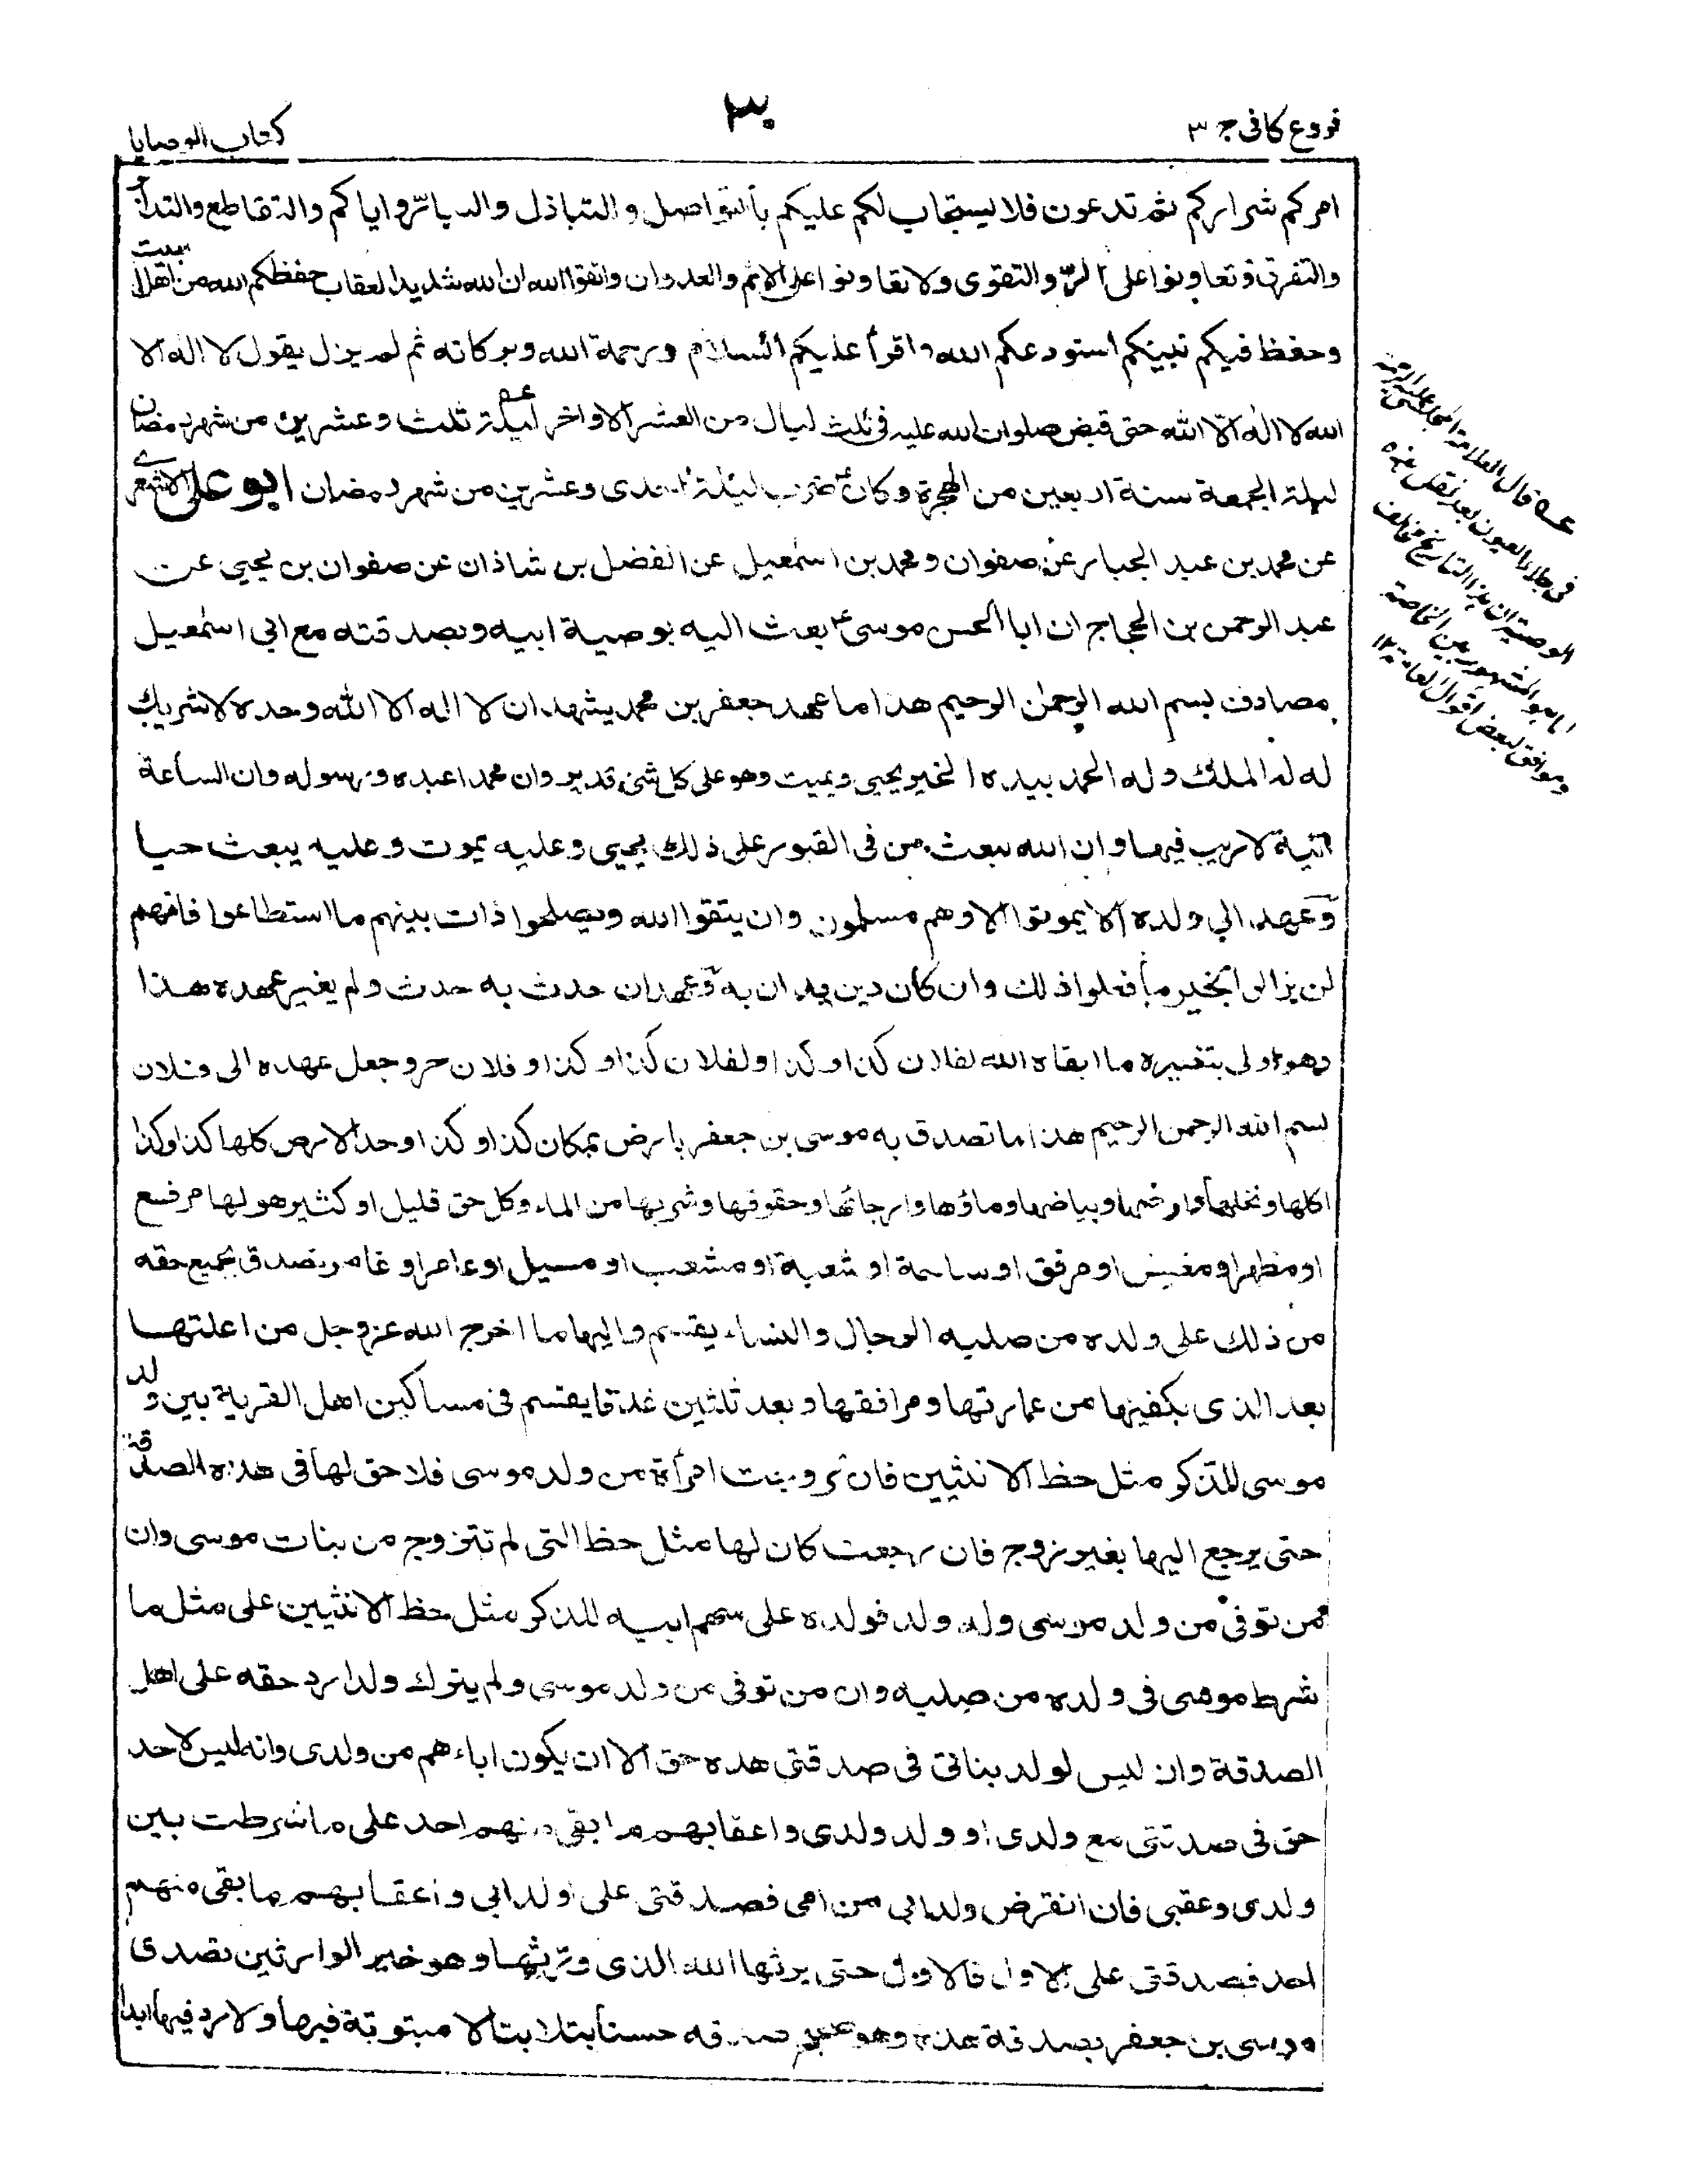 فروع كافى ج ٣
٣٠
كتاب الوصايا
امركم شراركم ثم تدعون فلا يستجاب لكم عليكم بالتواصل والتباذل والتبارّ واياكم والتقاطع والتدابر
والتفرق وتعاونوا على البرّ والتقوى ولا تعاونوا على الاثم والعدوان واتقوا الله ان الله شديد العقاب حفظكم الله من اهل بيت
وحفظ فيكم نبيكم استودعكم الله واقرأ عليكم السلام ورحمة الله وبركاته ثم لم يزل يقول لا اله الا
الله لا اله الّا الله حتى قبض صلوات الله عليه فى ثلث ليال من العشر الاواخر ليلة ثلث وعشرين من شهر رمضان
ليلة الجمعة سنة اربعين من الهجرة وكان ضرب ليلة احدى وعشرين من شهر رمضان ابو على الاشعرى
عن محمد بن عبد الجبار عن صفوان ومحمد بن اسمعيل عن الفضل بن شاذان عن صفوان بن يحيى عن
عبد الرحمن بن الحجاج ان ابا الحسن موسى ع بعث اليه بوصية ابيه وبصدقته مع ابى اسمعيل
مصادف بسم الله الرحمن الرحيم هذا ما عهد جعفر بن محمد يشهد ان لا اله الا الله وحده لا شريك
له له الملك وله الحمد بيده الخير يحيى ويميت وهو على كل شئ قدير وان محمدا عبده ورسوله وان الساعة
اتية لا ريب فيها وان الله يبعث من فى القبور على ذلك يحيى وعليه يموت وعليه يبعث حيا
وعهد الى ولده الا يموتوا الا وهم مسلمون وان يتقوا الله ويصلحوا ذات بينهم ما استطاعوا فانهم
لن يزالوا بخير ما فعلوا ذلك وان كان دين يدان به وعهد ان حدث به حدث ولم يغير عهده هذا
وهو اولى بتغييره ما ابقاه الله لفلان كذا وكذا ولفلان كذا وكذا وفلان حر وجعل عهده الى فلان
بسم الله الرحمن الرحيم هذا ما تصدق به موسى بن جعفر بارض بمكان كذا وكذا وحد الارض كلها كذا وكذا
اكلها ونخلها وارضها وبياضها وماؤها وارجائها وحقوقها وشربها من الماء وكل حق قليل او كثير هو لها مرفع
او مظهر او مغيض او مرفق او ساحة او شعبة او مشعب او مسيل او عامر او غامر تصدق بجميع حقه
من ذلك على ولده من صلبه الرجال والنساء يقسم واليها ما اخرج الله عز وجل من اغلتها
بعد الذى يكفيها من عمارتها ومرافقها وبعد ثلثين عذقا يقسم فى مساكين اهل القرية بين ولد
موسى للذكر مثل حظ الانثيين فان تزوجت امرأة من ولد موسى فلا حق لها فى هذه الصدقة
حتى يرجع اليها بغير زوج فان رجعت كان لها مثل حظ التى لم تتزوج من بنات موسى وان
من توفى من ولد موسى وله ولد فولده على سهم ابيه للذكر مثل حظ الانثيين على مثل ما
شرط موسى فى ولده من صلبه وان من توفى من ولد موسى ولم يترك ولدا رد حقه على اهل
الصدقة وان ليس لولد بناتى فى صدقتى هذه حق الا ان يكون اباءهم من ولدى وانه ليس لاحد
حق فى صدقتى مع ولدى او ولد ولدى واعقابهم ما بقى منهم احد على ما شرطت بين
ولدى وعقبى فان انقرض ولد ابى من امى فصدقتى على اولد ابى واعقابهم ما بقى منهم
احد فصدقتى على الاول فالاول حتى يرثها الله الذى ورثها وهو خير الوارثين تصدق
موسى بن جعفر بصدقة هذه وهو صدقه حسنا بتلا بتا لا مبتوتة فيها ولا رد فيها ابدا
عه قال العلامة المجلسى عليه الرحمة
فى جلاء العيون بعد نقل هذه
الوصية ان هذا التاريخ مخالف
لما هو المشهور بين الخاصة
وموافق لبعض اقوال العامة ١٢